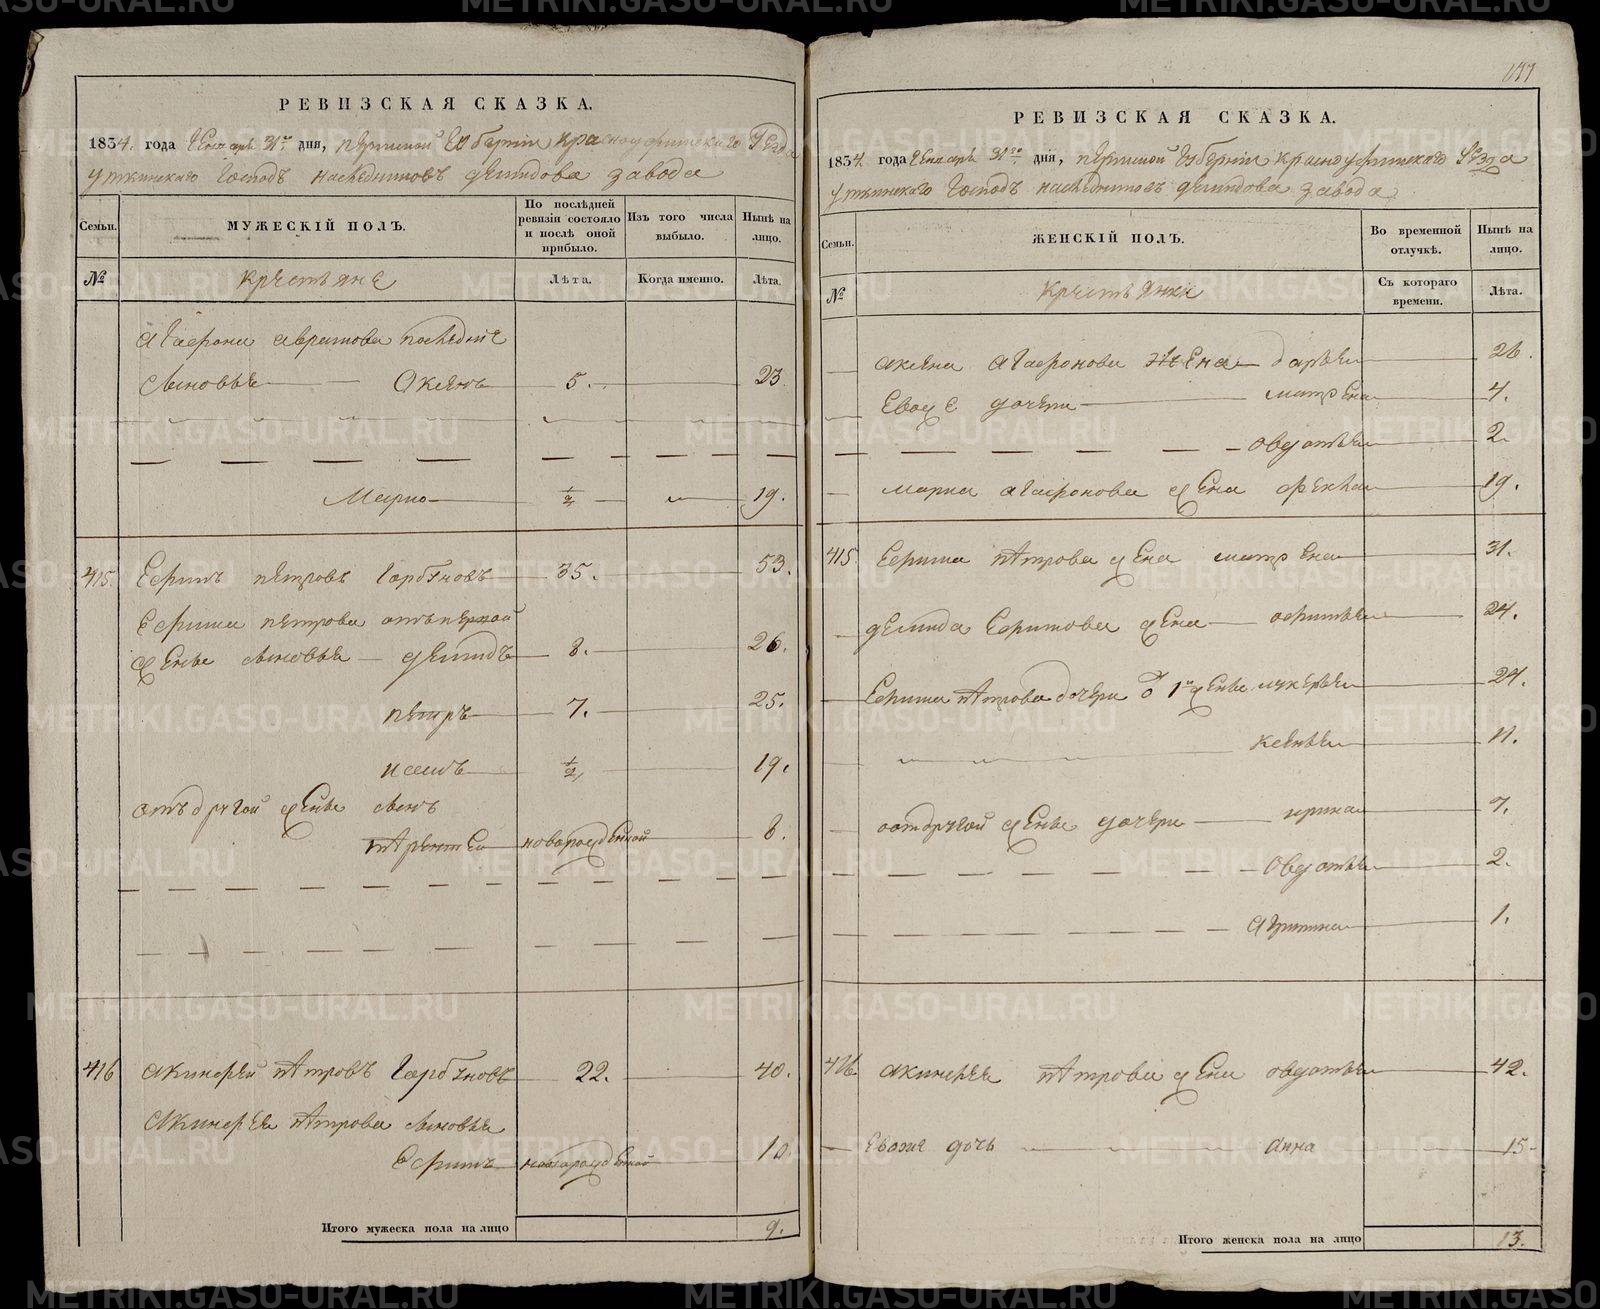 РЕВИЗСКАЯ СКАЗКА.
1834. года Генваря 31го дня, пермской Губернии красноуфимского Уезда
уткинскаго Господъ наследниковъ демидова завода
Семьи.
МУЖЕСКІЙ ПОЛЪ.
По послѣдней ревизіи состояло и послѣ оной прибыло.
Изъ того числа выбыло.
Нынѣ на лицо.
№
крестьяне
Лѣта.
Когда именно.
Лѣта.
агафона аврамова последние
сыновья Оксенъ 5. 23
Марко ½ 19.
415. Ефимъ петровъ Горбуновъ 35. 53.
Ефима петрова отъ первой
жены сыновья демидъ 8. 26.
петръ 7. 25.
исакъ ½ 19.
отъ другой жены сынъ
терентей новорожденной 8.
416 акинфей петровъ Горбуновъ 22. 40.
акинфея петрова сыновья
Ефимъ новорожденной 10.
Итого мужеска пола на лицо 9.
177
РЕВИЗСКАЯ СКАЗКА.
1834. года Генваря 31го дня, пермской Губернии красноуфимскаго Уезда
уткинскаго Господъ наследниковъ демидова завода
Семьи.
ЖЕНСКІЙ ПОЛЪ.
Во временной отлучкѣ.
Нынѣ на лицо.
№
крестьянки
Съ котораго времени.
Лѣта.
аксена агафонова жена дарья 26.
Евоже дочери матрена 4.
овдотья 2.
марка агафонова жена фекла 19.
415. Ефима петрова жена матрена 31.
демида Ефимова жена офимья 24.
Ефима петрова дочери о 1й жены лукерья 24.
ксенья 11.
от другой жены дочери ирина 7.
Овдотья 2.
агрипина 1.
416. акинфея петрова жена овдотья 42.
Евоже дочь анна 15
Итого женска пола на лицо 13.
METRIKI.GASO-URAL.RU